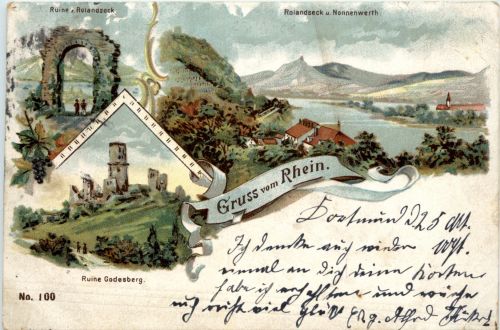 Ruine v Rolandseck.
Rolandseck u. Nonnenwerth
Gruss vom Rhein.
Dortmund d 25 Okt.
Ich denke auch wieder
einmal an dich deine Karten
habe ich erhalten und wünsche
noch recht viel Glück Alfred
Ruine Godesberg.
No. 100